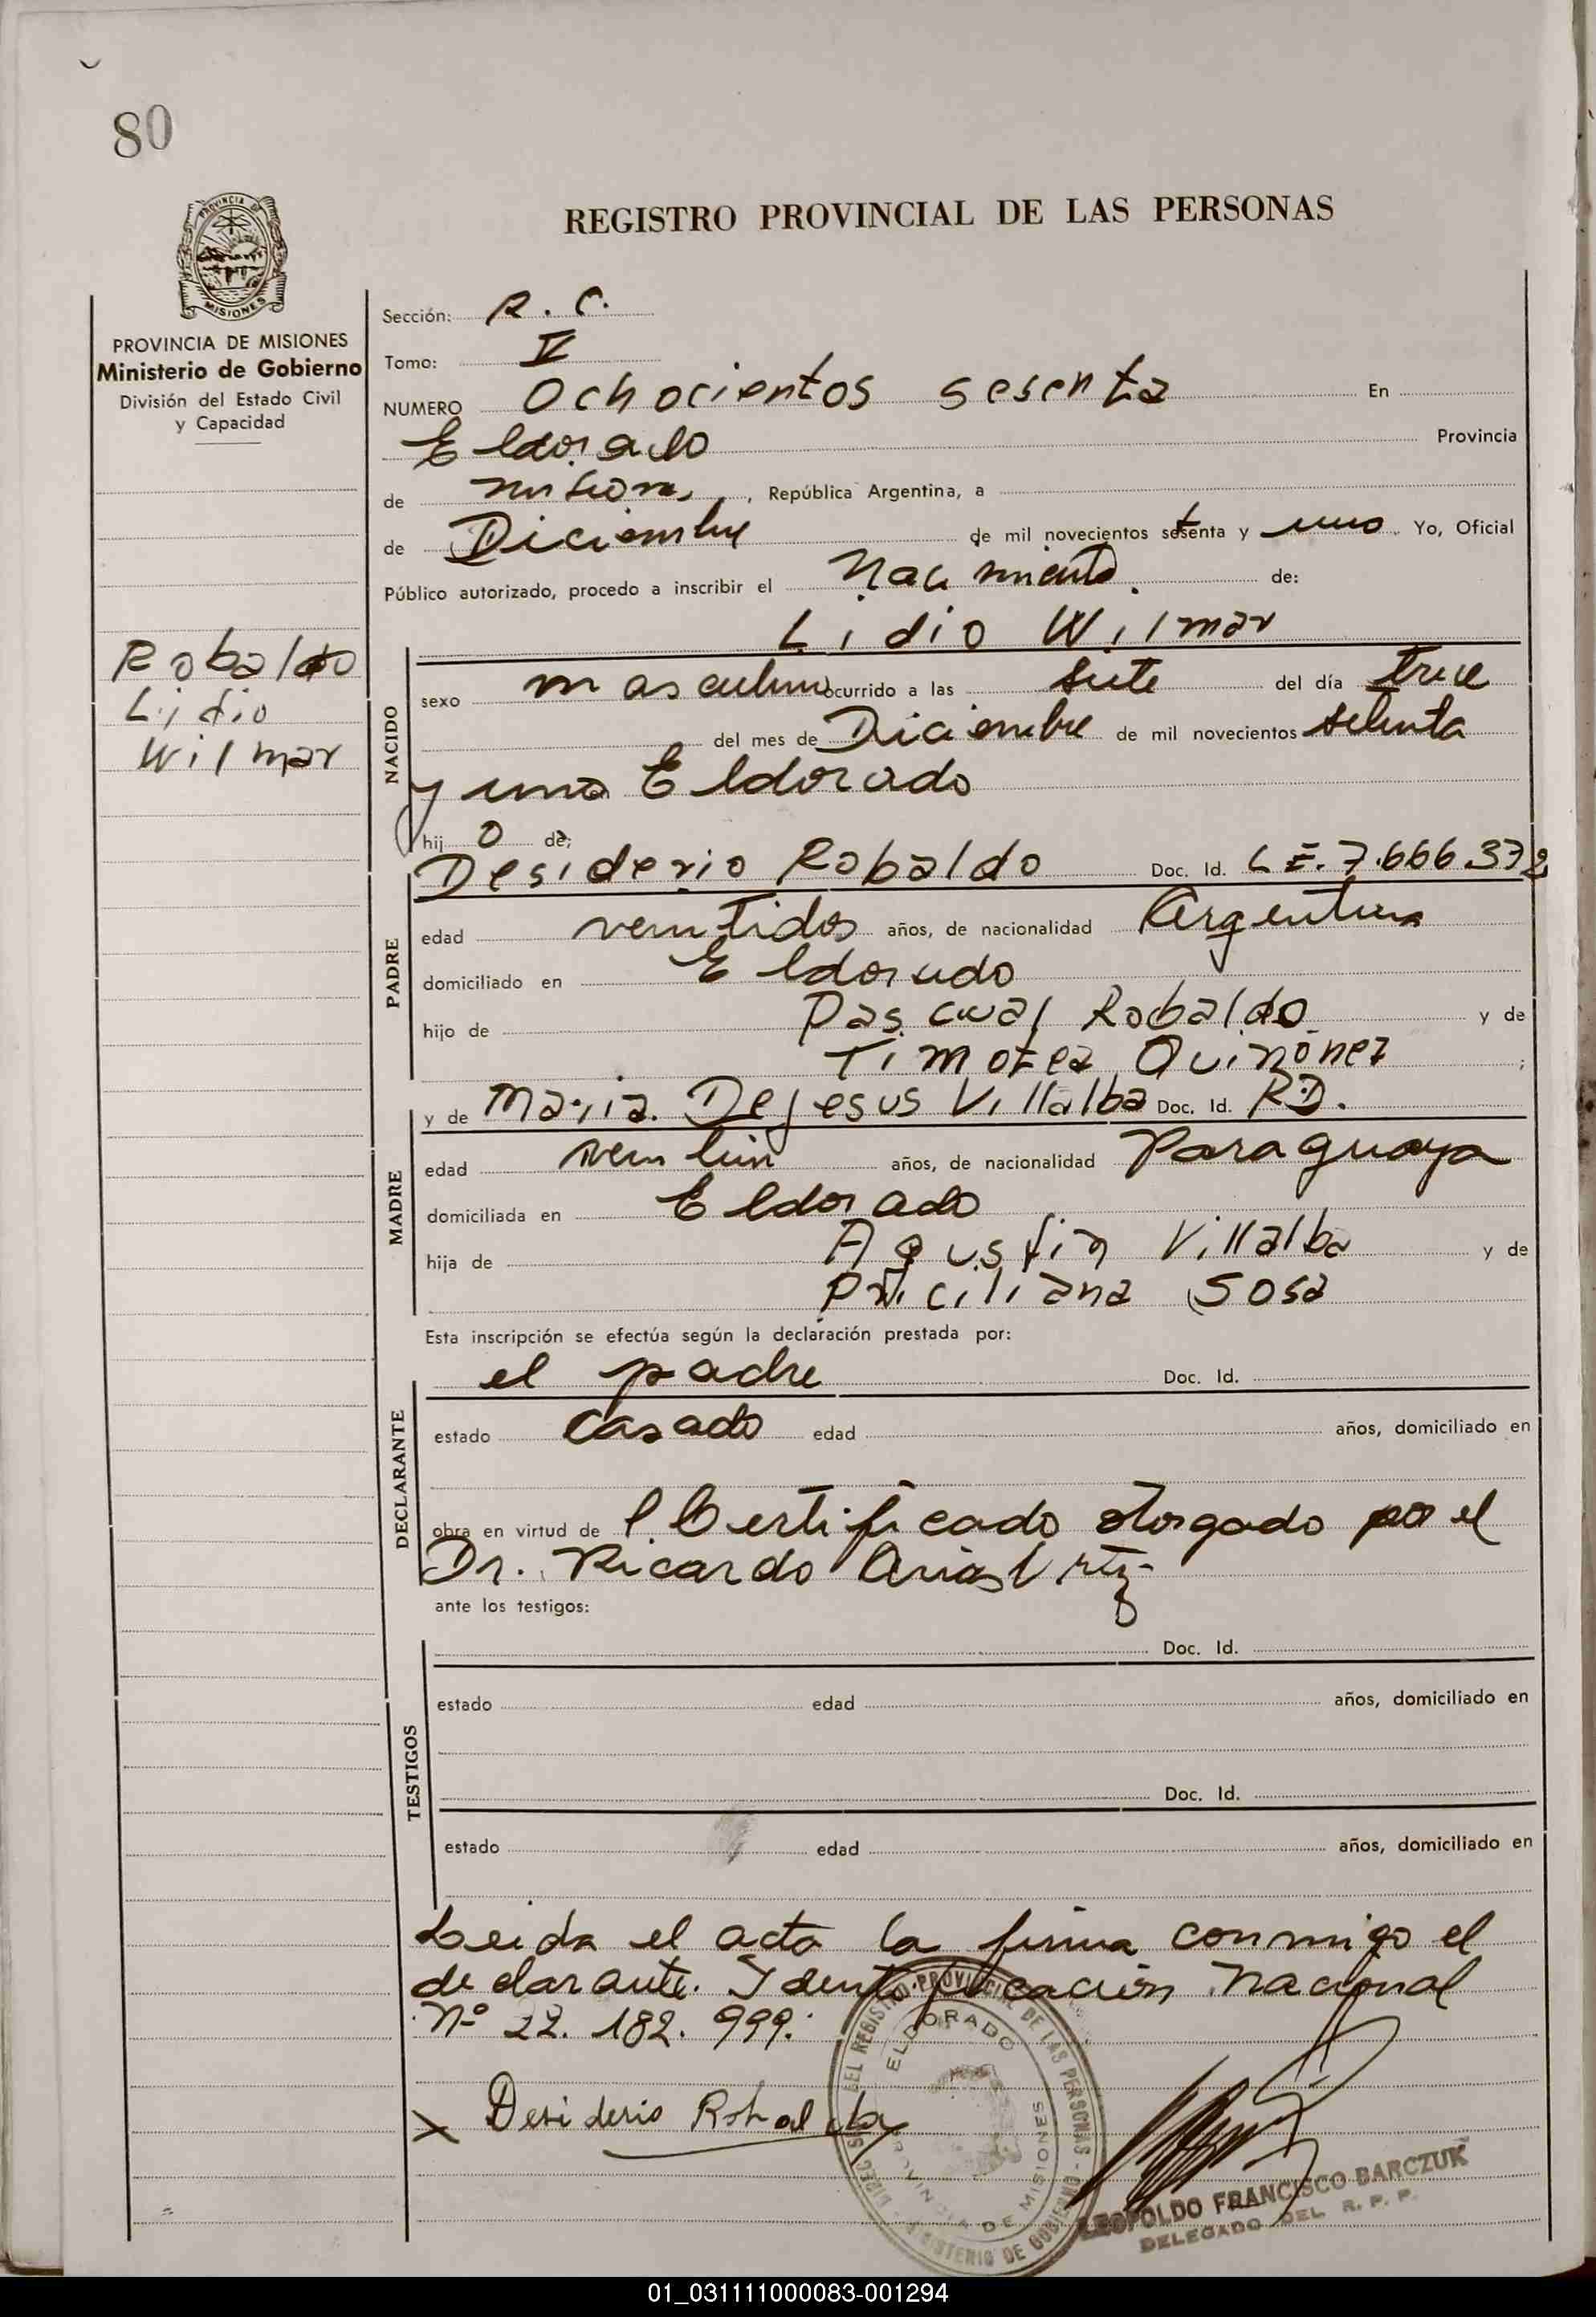 80
REGISTRO PROVINCIAL DE LAS PERSONAS
PROVINCIA DE
MISIONES
PROVINCIA DE MISIONES
Ministerio de Gobierno
División del Estado Civil
y Capacidad
Robaldo
Lidio
Wilmar
Sección: R. C.
Tomo: V
NUMERO Ochocientos sesenta En
Eldorado Provincia
de Misiones, República Argentina, a
de Diciembre de mil novecientos setenta y uno Yo, Oficial
Público autorizado, procedo a inscribir el Nacimiento de:
Lidio Wilmar
NACIDO
sexo masculino ocurrido a las siete del día trece
del mes de Diciembre de mil novecientos setenta
y uno en Eldorado
hij o de:
Desiderio Robaldo Doc. Id. L E. 7.666.372
PADRE
edad veintidos años, de nacionalidad Argentina
domiciliado en Eldorado
hijo de Pascual Robaldo y de
Timotea Quiñonez ;
y de Maria Dejesus Villalba Doc. Id. R.D.
MADRE
edad años, de nacionalidad Paraguaya
domiciliada en Eldorado
hija de Agustin Villalba y de
Priciliana Sosa
Esta inscripción se efectúa según la declaración prestada por:
el padre Doc. Id.
DECLARANTE
estado casado edad años, domiciliado en
obra en virtud de Certificado otorgado por el
Dr. Ricardo Arias
ante los testigos:
Doc. Id.
TESTIGOS
estado edad años, domiciliado en
Doc. Id.
estado edad años, domiciliado en
Leida el acta la firma conmigo el
declarante. Identificación Nacional
Nº 22. 182. 999.
x Desiderio Robaldo
DEL REGISTRO PROVINCIAL DE LAS PERSONAS
ELDORADO
PROVINCIA DE MISIONES
LEOPOLDO FRANCISCO BARCZUK
DELEGADO DEL R. P. P.
01_031111000083-001294